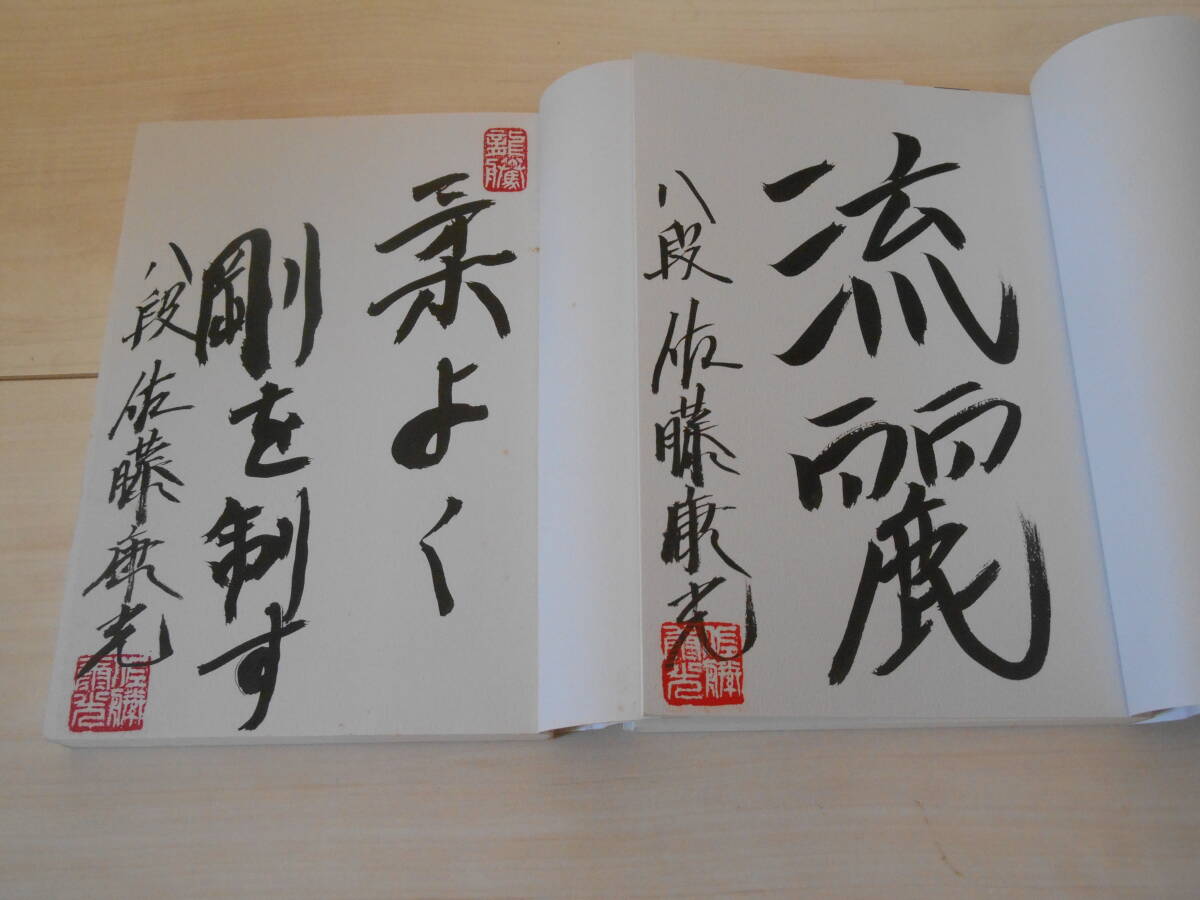 流麗
八段 佐藤康光
佐藤康光
柔よく
剛を制す
八段 佐藤康光
佐藤康光